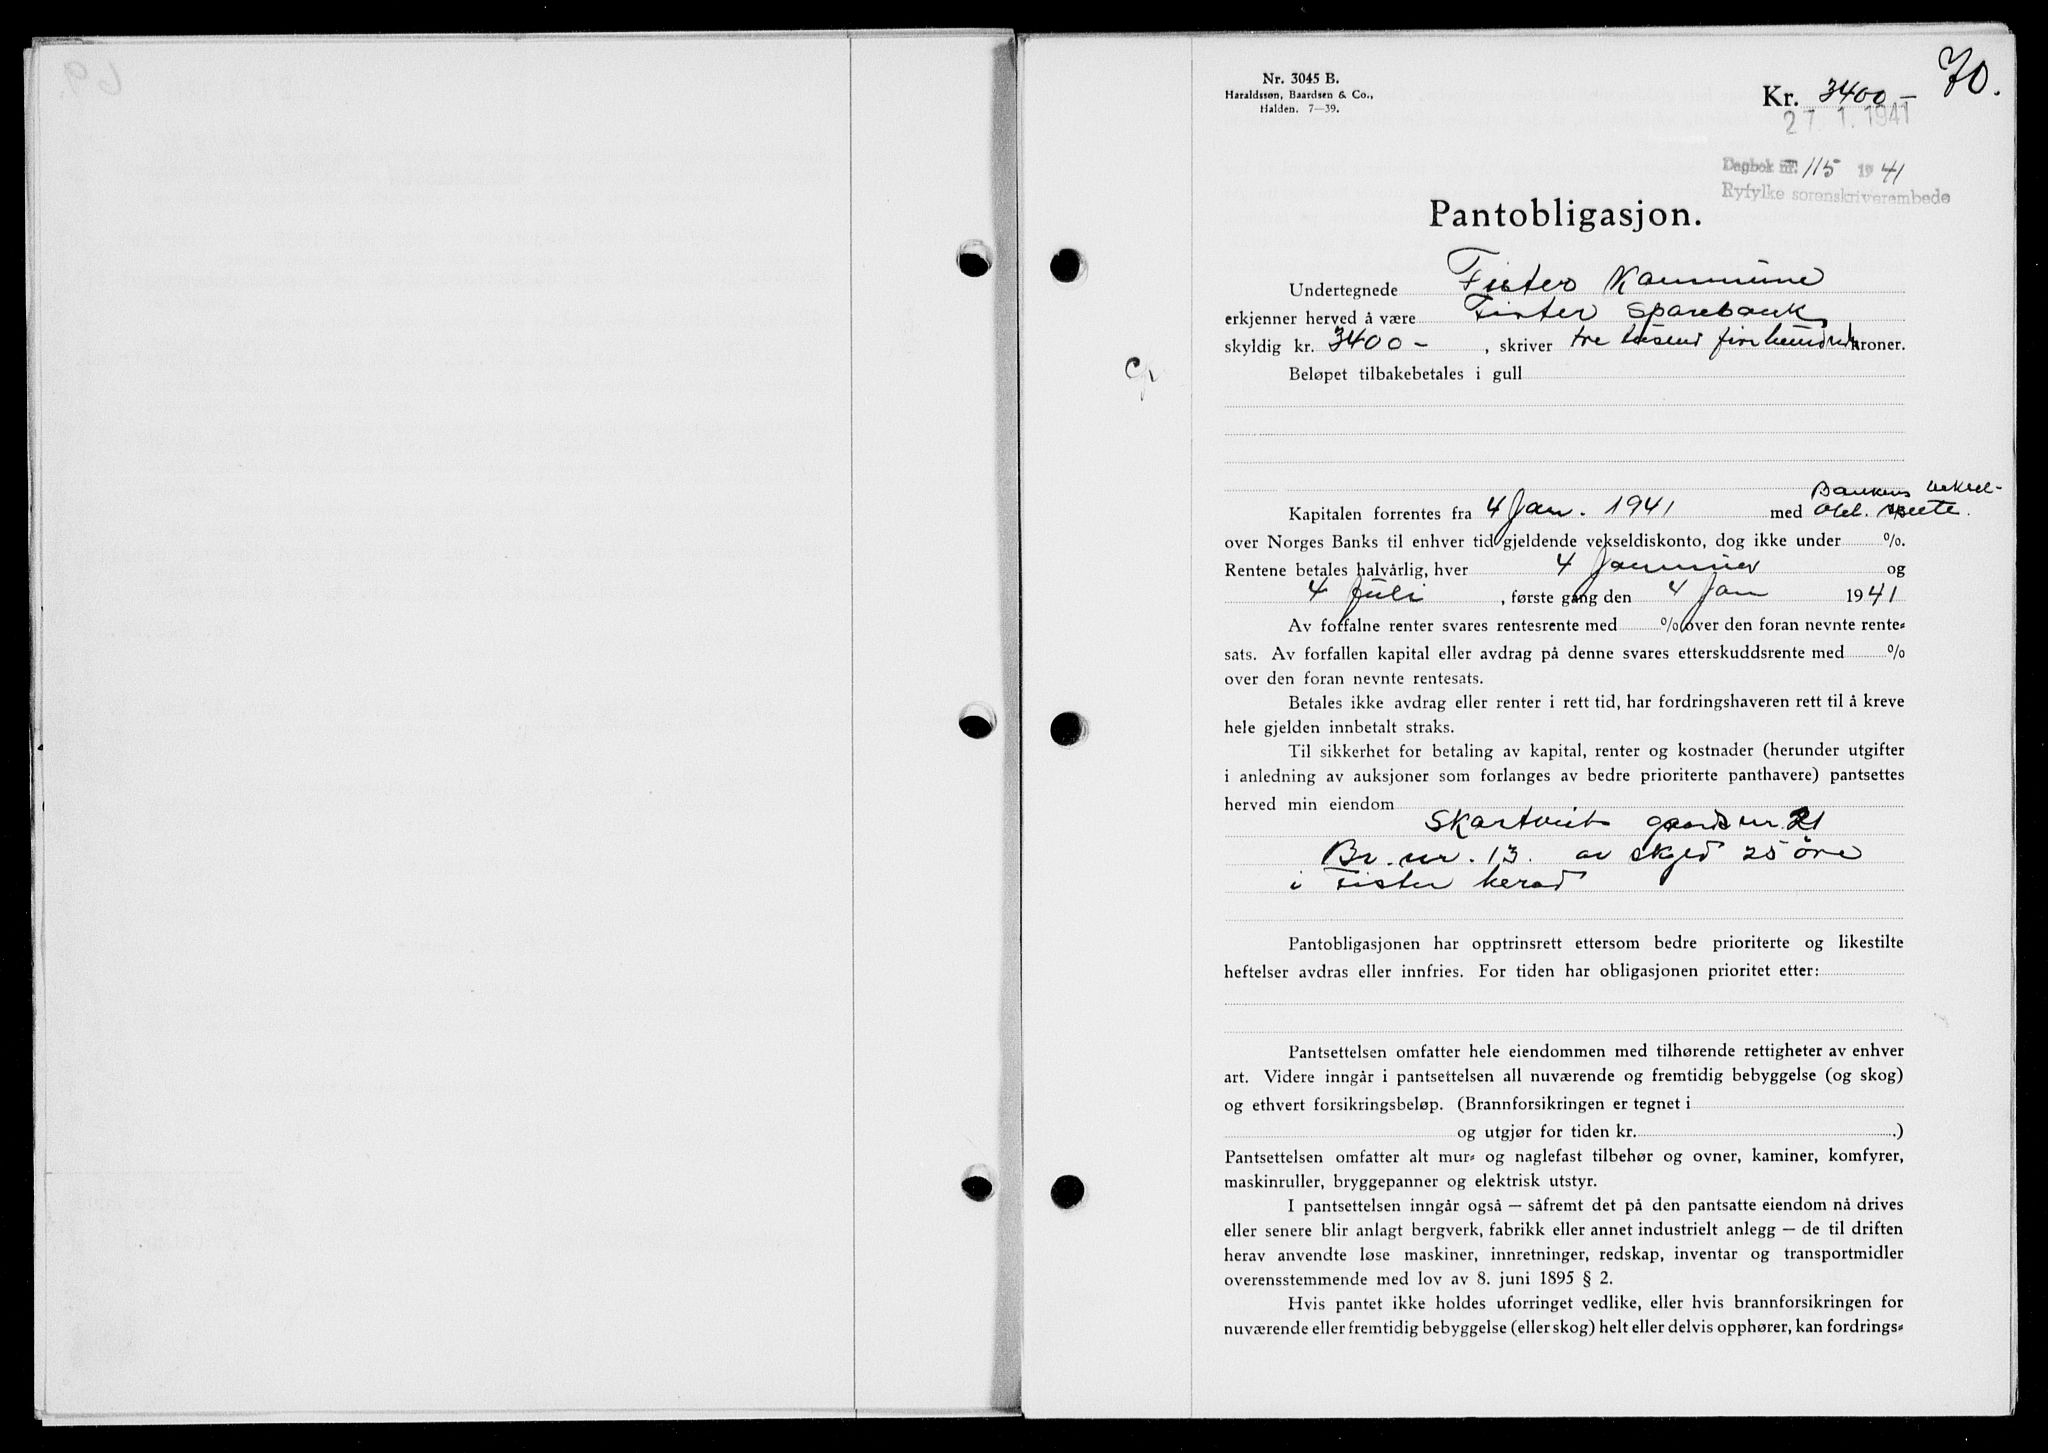 70.
Nr. 3045 B.
Haraldssøn, Baardsen & Co.,
Halden. 7—39.
Kr. 3400 -
27. 1. 1941
Dagbok nr. 115 1941
Ryfylke sorenskriverembede
Pantobligasjon.
Undertegnede Fister Kommune
erkjenner herved å være Fister Sparebank
skyldig kr. 3400 - , skriver tre tusend fire hundred kroner.
Beløpet tilbakebetales i gull
Kapitalen forrentes fra 4 Jan. 1941 med Bankens veksel-
Obl. rente.
over Norges Banks til enhver tid gjeldende vekseldiskonto, dog ikke under %.
Rentene betales halvårlig, hver 4 Januar og
4 Juli , første gang den 4 Jan 1941
Av forfalne renter svares rentesrente med % over den foran nevnte rente-
sats. Av forfallen kapital eller avdrag på denne svares etterskuddsrente med %
over den foran nevnte rentesats.
Betales ikke avdrag eller renter i rett tid, har fordringshaveren rett til å kreve
hele gjelden innbetalt straks.
Til sikkerhet for betaling av kapital, renter og kostnader (herunder utgifter
i anledning av auksjoner som forlanges av bedre prioriterte panthavere) pantsettes
herved min eiendom
Skartveit gaardsnr. 21
Br. nr. 13. av skyld 25 øre
i Fister herad
Pantobligasjonen har opptrinsrett ettersom bedre prioriterte og likestilte
heftelser avdras eller innfries. For tiden har obligasjonen prioritet etter:
Pantsettelsen omfatter hele eiendommen med tilhørende rettigheter av enhver
art. Videre inngår i pantsettelsen all nuværende og fremtidig bebyggelse (og skog)
og ethvert forsikringsbeløp. (Brannforsikringen er tegnet i
og utgjør for tiden kr. .)
Pantsettelsen omfatter alt mur- og naglefast tilbehør og ovner, kaminer, komfyrer,
maskinruller, bryggepanner og elektrisk utstyr.
I pantsettelsen inngår også — såfremt det på den pantsatte eiendom nå drives
eller senere blir anlagt bergverk, fabrikk eller annet industrielt anlegg — de til driften
herav anvendte løse maskiner, innretninger, redskap, inventar og transportmidler
overensstemmende med lov av 8. juni 1895 § 2.
Hvis pantet ikke holdes uforringet vedlike, eller hvis brannforsikringen for
nuværende eller fremtidig bebyggelse (eller skog) helt eller delvis opphører, kan fordrings-